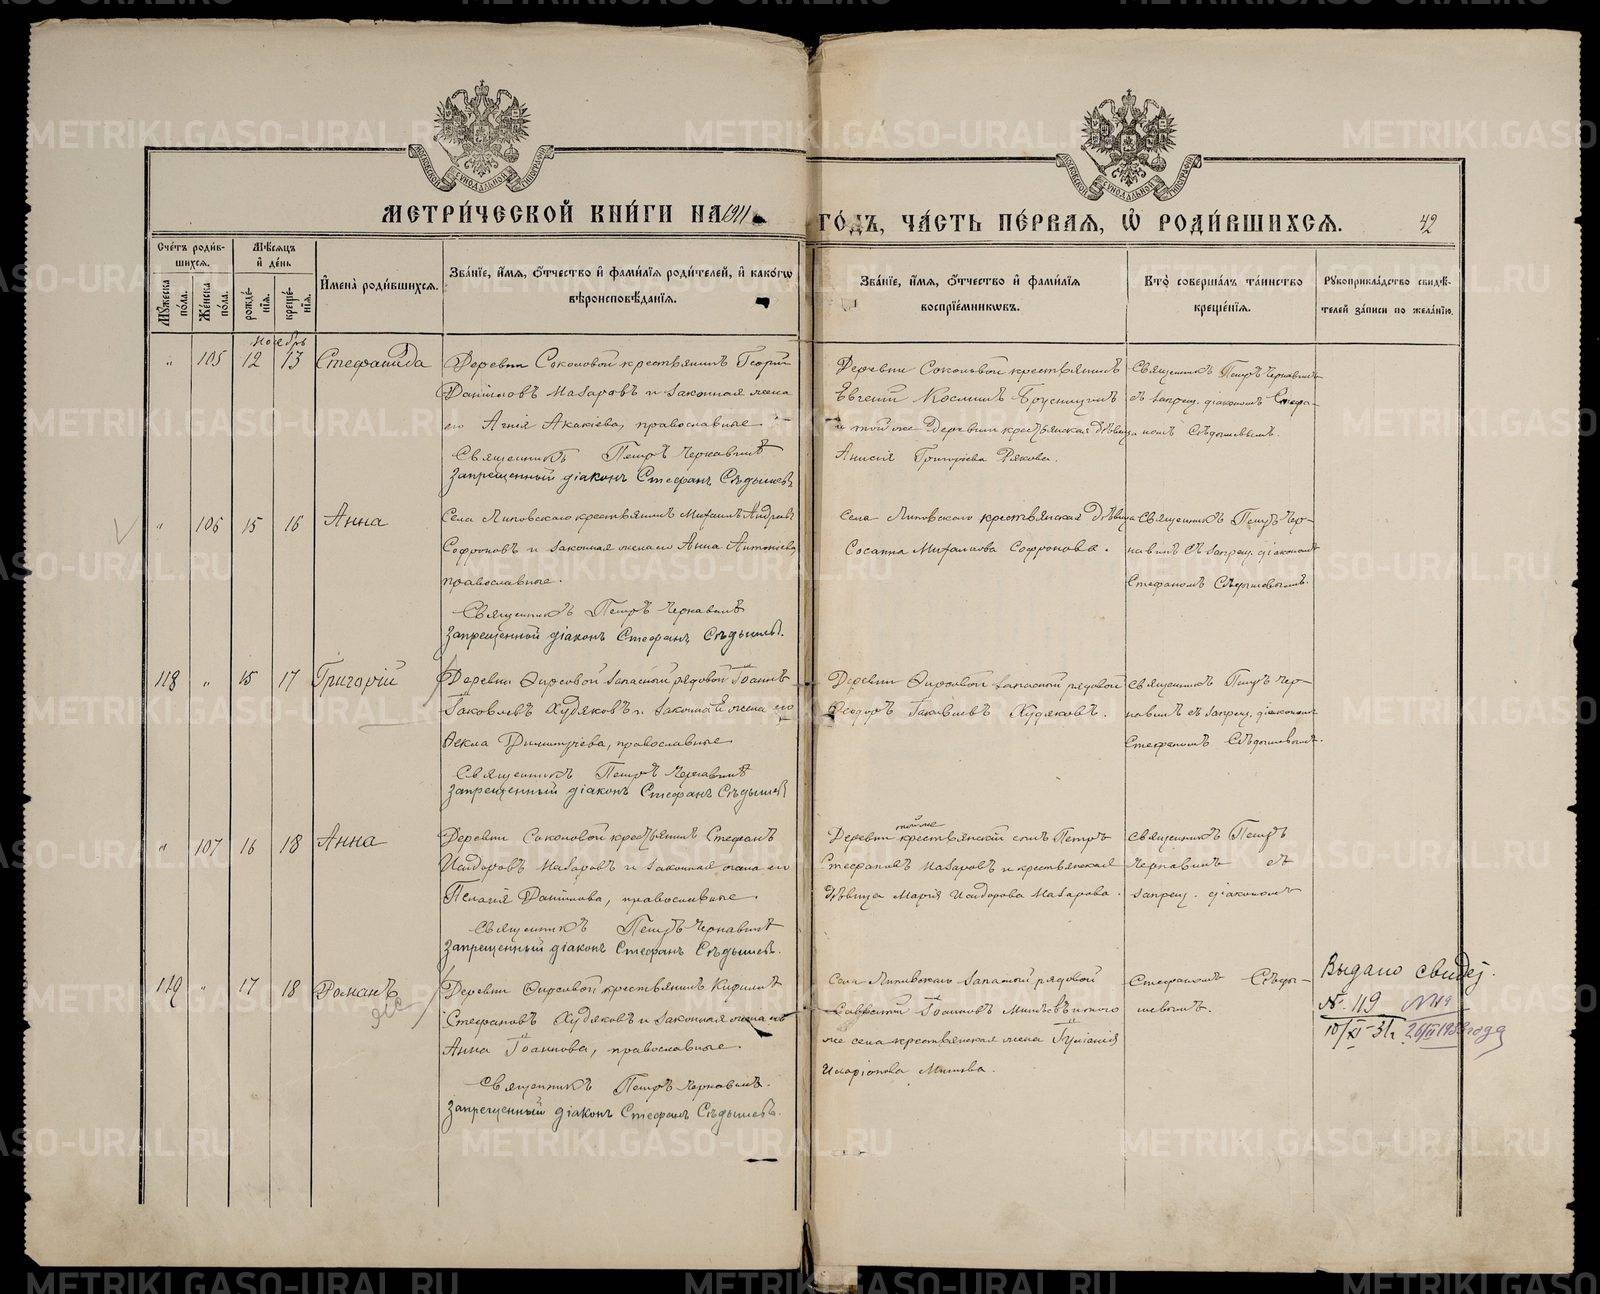 МЕТРИ́ЧЕСКОЙ КНИ́ГИ НА 1911 ГО́ДЪ, ЧА́СТЬ ПЕ́РВАЯ, Ѽ РОДИ́ВШИХСЯ.
42
Сче́тъ роди́в-
шихся.
Мѣ́сяцъ
и҆ де́нь
Мꙋ́жеска по́ла.
Же́нска по́ла.
рожде́-нїя.
креще́-нїя.
И҆мена̀ роди́вшихся.
Зва́нїе, и҆́мя, ѻ҆́тчество и҆ фами́лїя роди́телей, и҆ како́гѡ
вѣроисповѣ́данїя.
Зва́нїе, и҆́мя, ѻ҆́тчество и҆ фами́лїя
воспрїе́мникѡвъ.
Кто̀ соверша́лъ та́инство
креще́нїя.
Рꙋкоприкла́дство свидѣ́-
телей за́писи по жела́нїю.
Ноябрь
" 105 12 13 Стефанида
Деревни Соколовой крестьянинъ Георгій
Даниловъ Назаровъ и законная жена
его Агнія Акакіева, православные.
Священникъ Петръ Чернавинъ
Запрещенный діаконъ Стефанъ Сѣдышевъ
Деревни Соколовой крестьянинъ
Евгеній Косминъ Брусницинъ
и той же деревни крестьянская дѣвица
Анисія Григоріева
Священникъ Петръ Чернавинъ
съ запрещ. діакономъ Стефа-
номъ Сѣдышевымъ.
" 106 15 16 Анна
Села Липовскаго крестьянинъ Михаилъ Андреевъ
Софроновъ и законная жена его Анна Антоніева,
православные.
Священникъ Петръ Чернавинъ
Запрещенный діаконъ Стефанъ Сѣдышевъ.
Села Липовскаго крестьянская дѣвица
Сосанна Михаилова Софронова.
Священникъ Петръ Чер-
навинъ съ запрещ. діакономъ
Стефаномъ Сѣдышевымъ.
118 " 15 17 Григорій
Деревни Фирсовой запасный рядовой Іоаннъ
Іаковлевъ Худяковъ и законная жена его
Ѳекла Димитріева, православные
Священникъ Петръ Чернавинъ
Запрещенный діаконъ Стефанъ Сѣдышевъ
Деревни Фирсовой запасный рядовой
Ѳеодоръ Іаковлевъ Худяковъ.
Священникъ Петръ Чер-
навинъ съ запрещ. діакономъ
Стефаномъ Сѣдышевымъ.
" 107 16 18 Анна
Деревни Соколовой крестьянинъ Стефанъ
Исидоровъ Назаровъ и законная жена его
Пелагія Данилова, православные.
Священникъ Петръ Чернавинъ
Запрещенный діаконъ Стефанъ Сѣдышевъ.
той же
Деревни крестьянскій сынъ Петръ
Стефановъ Назаровъ и крестьянская
дѣвица Марія Исидорова Назарова.
Священникъ Петръ
Чернавинъ съ
запрещ. діакономъ
119 " 17 18 Романъ
Деревни Фирсовой крестьянинъ Кириллъ
Стефановъ Худяковъ и законная жена его
Анна Іоаннова, православные.
Священникъ Петръ Чернавинъ.
Запрещенный діаконъ Стефанъ Сѣдышевъ.
Села Липовскаго запасный рядовой
Савватій Іоанновъ и того
же села крестьянская жена Іуліанія
Иларіонова
Стефаномъ Сѣды-
шевымъ.
Выдано свидет.
№ 119 №119
10/XI-31г.
METRIKI.GASO-URAL.RU